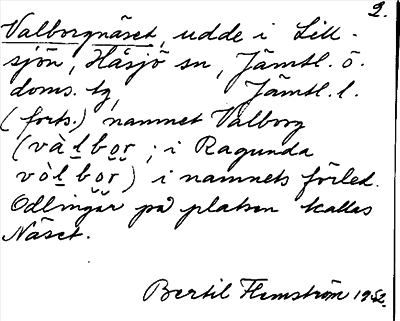 2.
Valborgnäset, udde i Lill-
sjön, Håsjö sn, Jämtl. ö.
doms. tg, Jämtl. l.
(forts.) namnet Valborg
(vàl̮bo̮r̮, i Ragunda
vòl̮bo̮r̮) i namnets förled.
Odlingar på platsen kallas
Näset.
Bertil Flemström 1952.